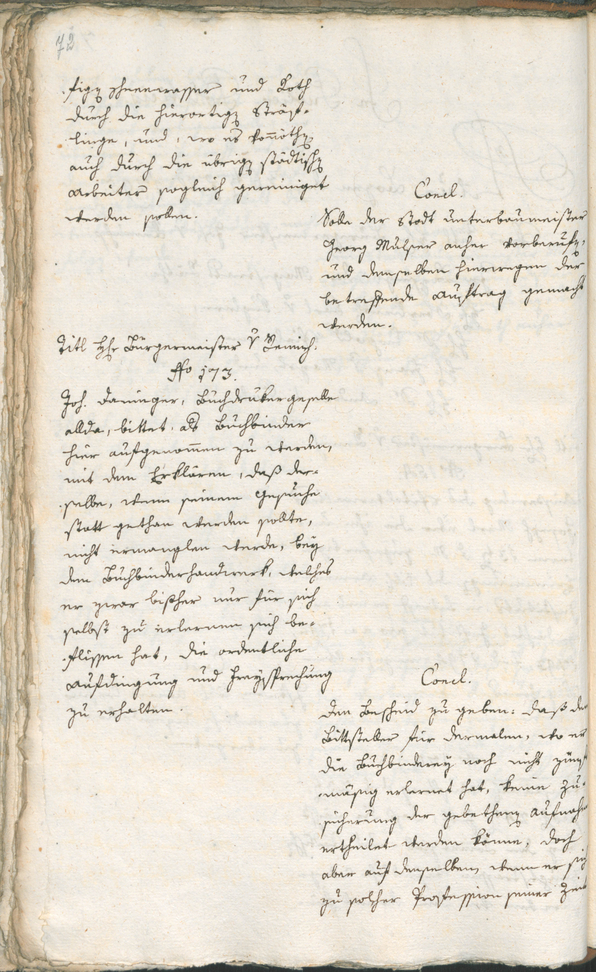 72
-fige schneewasser und Koth
durch die hierortige Sträf-
linge, und, wo es vonnöthen
auch durch die übrige städtische
Arbeiter sogleich gereiniget
werden sollen.
Concl.
Solle der Stadt Unterbaumeister
Georg Mulser anher vorberufen,
und demselben hierwegen der
betreffende Auftrag gemacht
werden.
Titl. Hr. Bürgermeister v.
No 173.
Joh. Daninger, Buchdrukergeselle
allda, bittet, als Buchbinder
hier aufgenommen zu werden,
mit dem Erklären, daß der-
-selbe, wenn seinem Gesuche
statt gethan werden sollte,
nicht ermanglen werde, bey
dem Buchbinderhandwerk, welches
er zwar bißher nur für sich
selbst zu erlernen sich be-
-flissen hat, die ordentliche
Aufdingung und Freysprechung
zu erhalten.
Concl.
Den Bescheid zu geben: daß dem
Bittsteller für dermalen, wo er
die Buchbinderey noch nicht zunft-
-mäßig erlernet hat, keine Zu-
sicherung der gebethenen Aufnahm
ertheilet werden könne, doch
aber auf denselben, wenn er sich
zu solcher Profession seiner Zeit